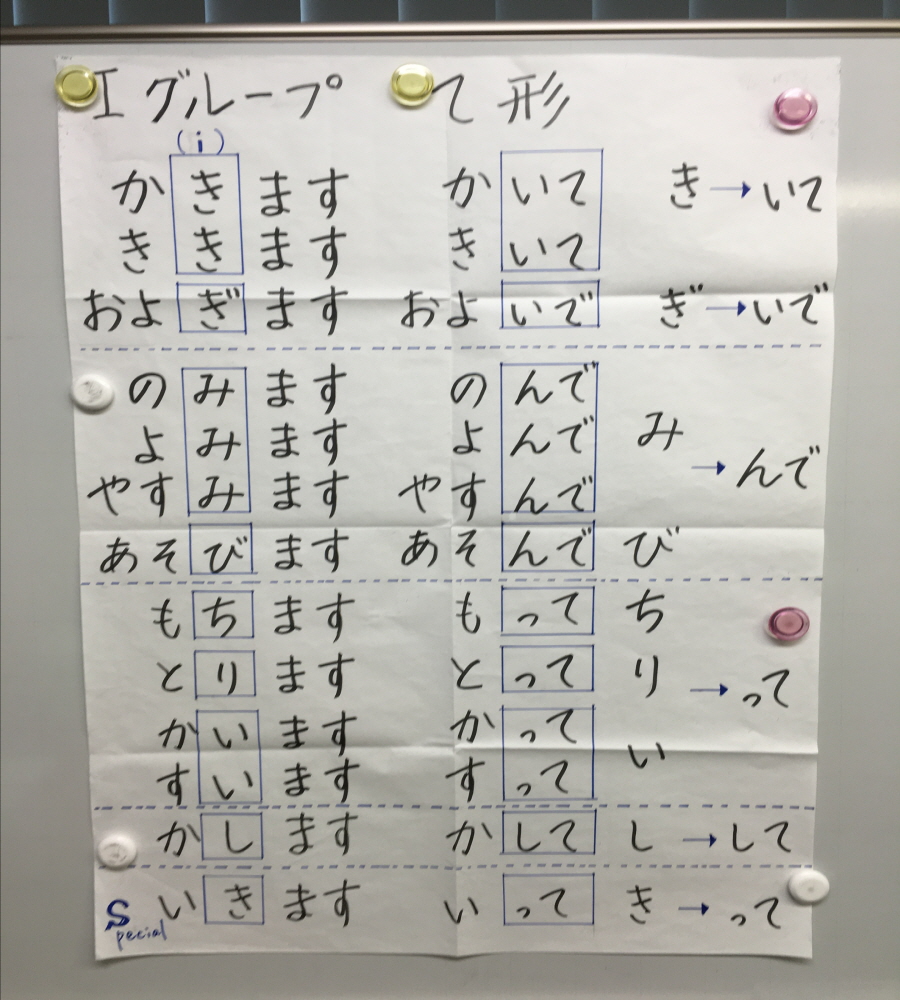 I グループ て 形
(i)
かきます かいて き→いて
ききます きいて
およぎます およいで ぎ→いで
のみます のんで み
よみます よんで →んで
やすみます やすんで
あそびます あそんで び
もちます もって ち
とります とって り →って
かいます かって い
すいます すって
かします かして し→して
Special いきます いって き→って